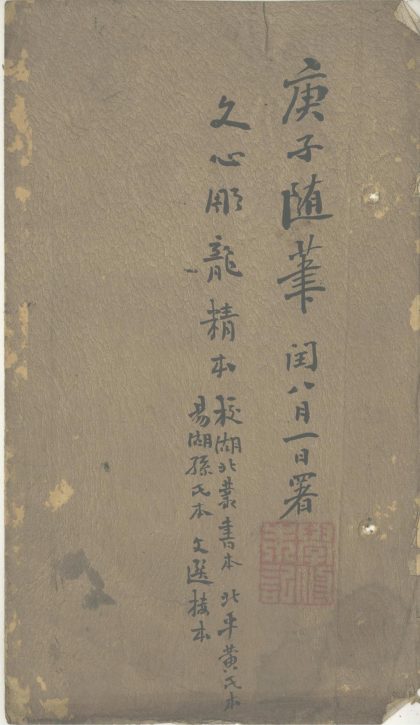 庚子随筆 閏八月一日署
文心彫龍精本
校湖北叢書本 北平黃氏本
易湖孫氏本 文選本